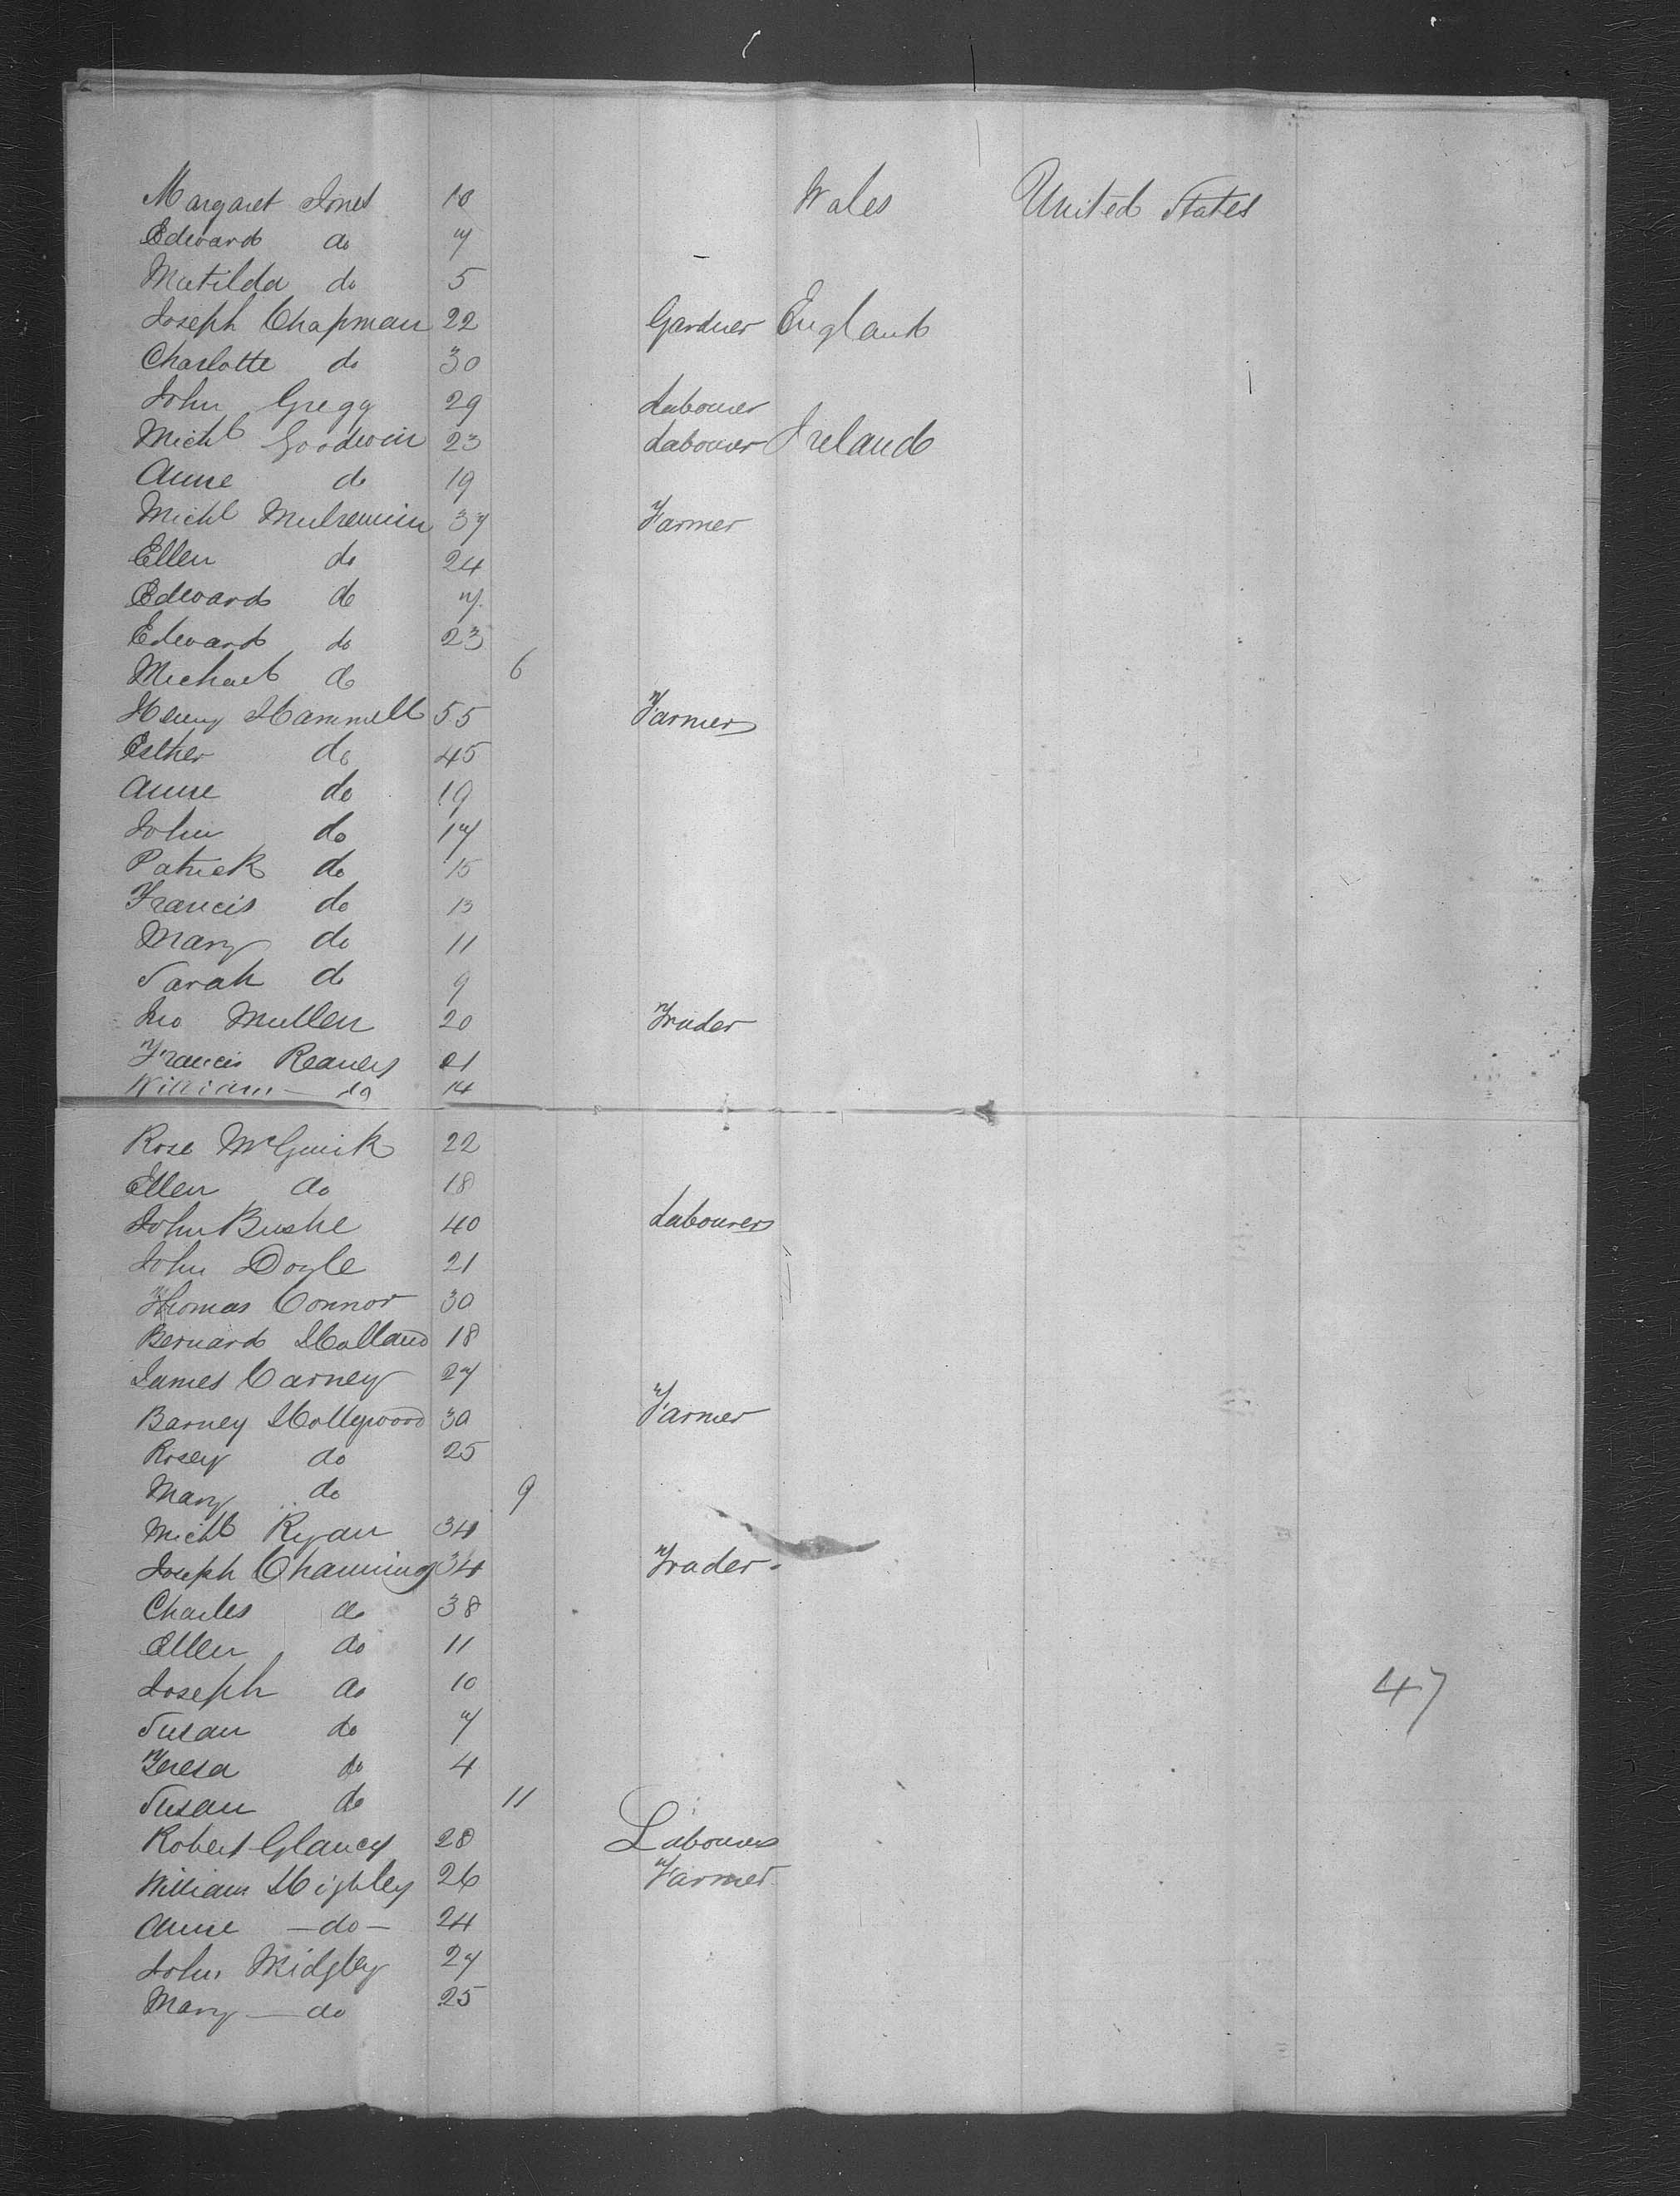 Margaret Jones 10 Wales United States
Edward do 7
Matilda do 5
Joseph Chapman 22 Gardner England
Charlotte do 30
John Gregg 29 Labourer
Michl Goodwin 23 Labourer Ireland
Anne do 19
Michl 37 Farmer
Ellen do 24
Edward do 7
Edward do 23
Michael do 6
Henry Hammell 55 Farmer
Esther do 45
Anne do 19
John do 17
Patrick do 15
Francis do 13
Mary do 11
Sarah do 9
Jno Mullen 20 Trader
Francis Reavers 21
William do 14
Rose McGuirk 22
Ellen do 18
John Bushe 40 Labourer
John Doyle 21
Thomas Connor 30
Bernard Holland 18
James Carney 27
Barney Hollywood 30 Farmer
Rosey do 25
Mary do 9
Michl Ryan 34
Joseph Channing 34 Trader
Charles do 38
Ellen do 11
Joseph do 10
47
Susan do 7
Teresa do 4
Susan do 11
Robert Glancy 28 Labourer
William Highley 26 Farmer
Anne - do - 24
John Midgley 27
Mary - do 25